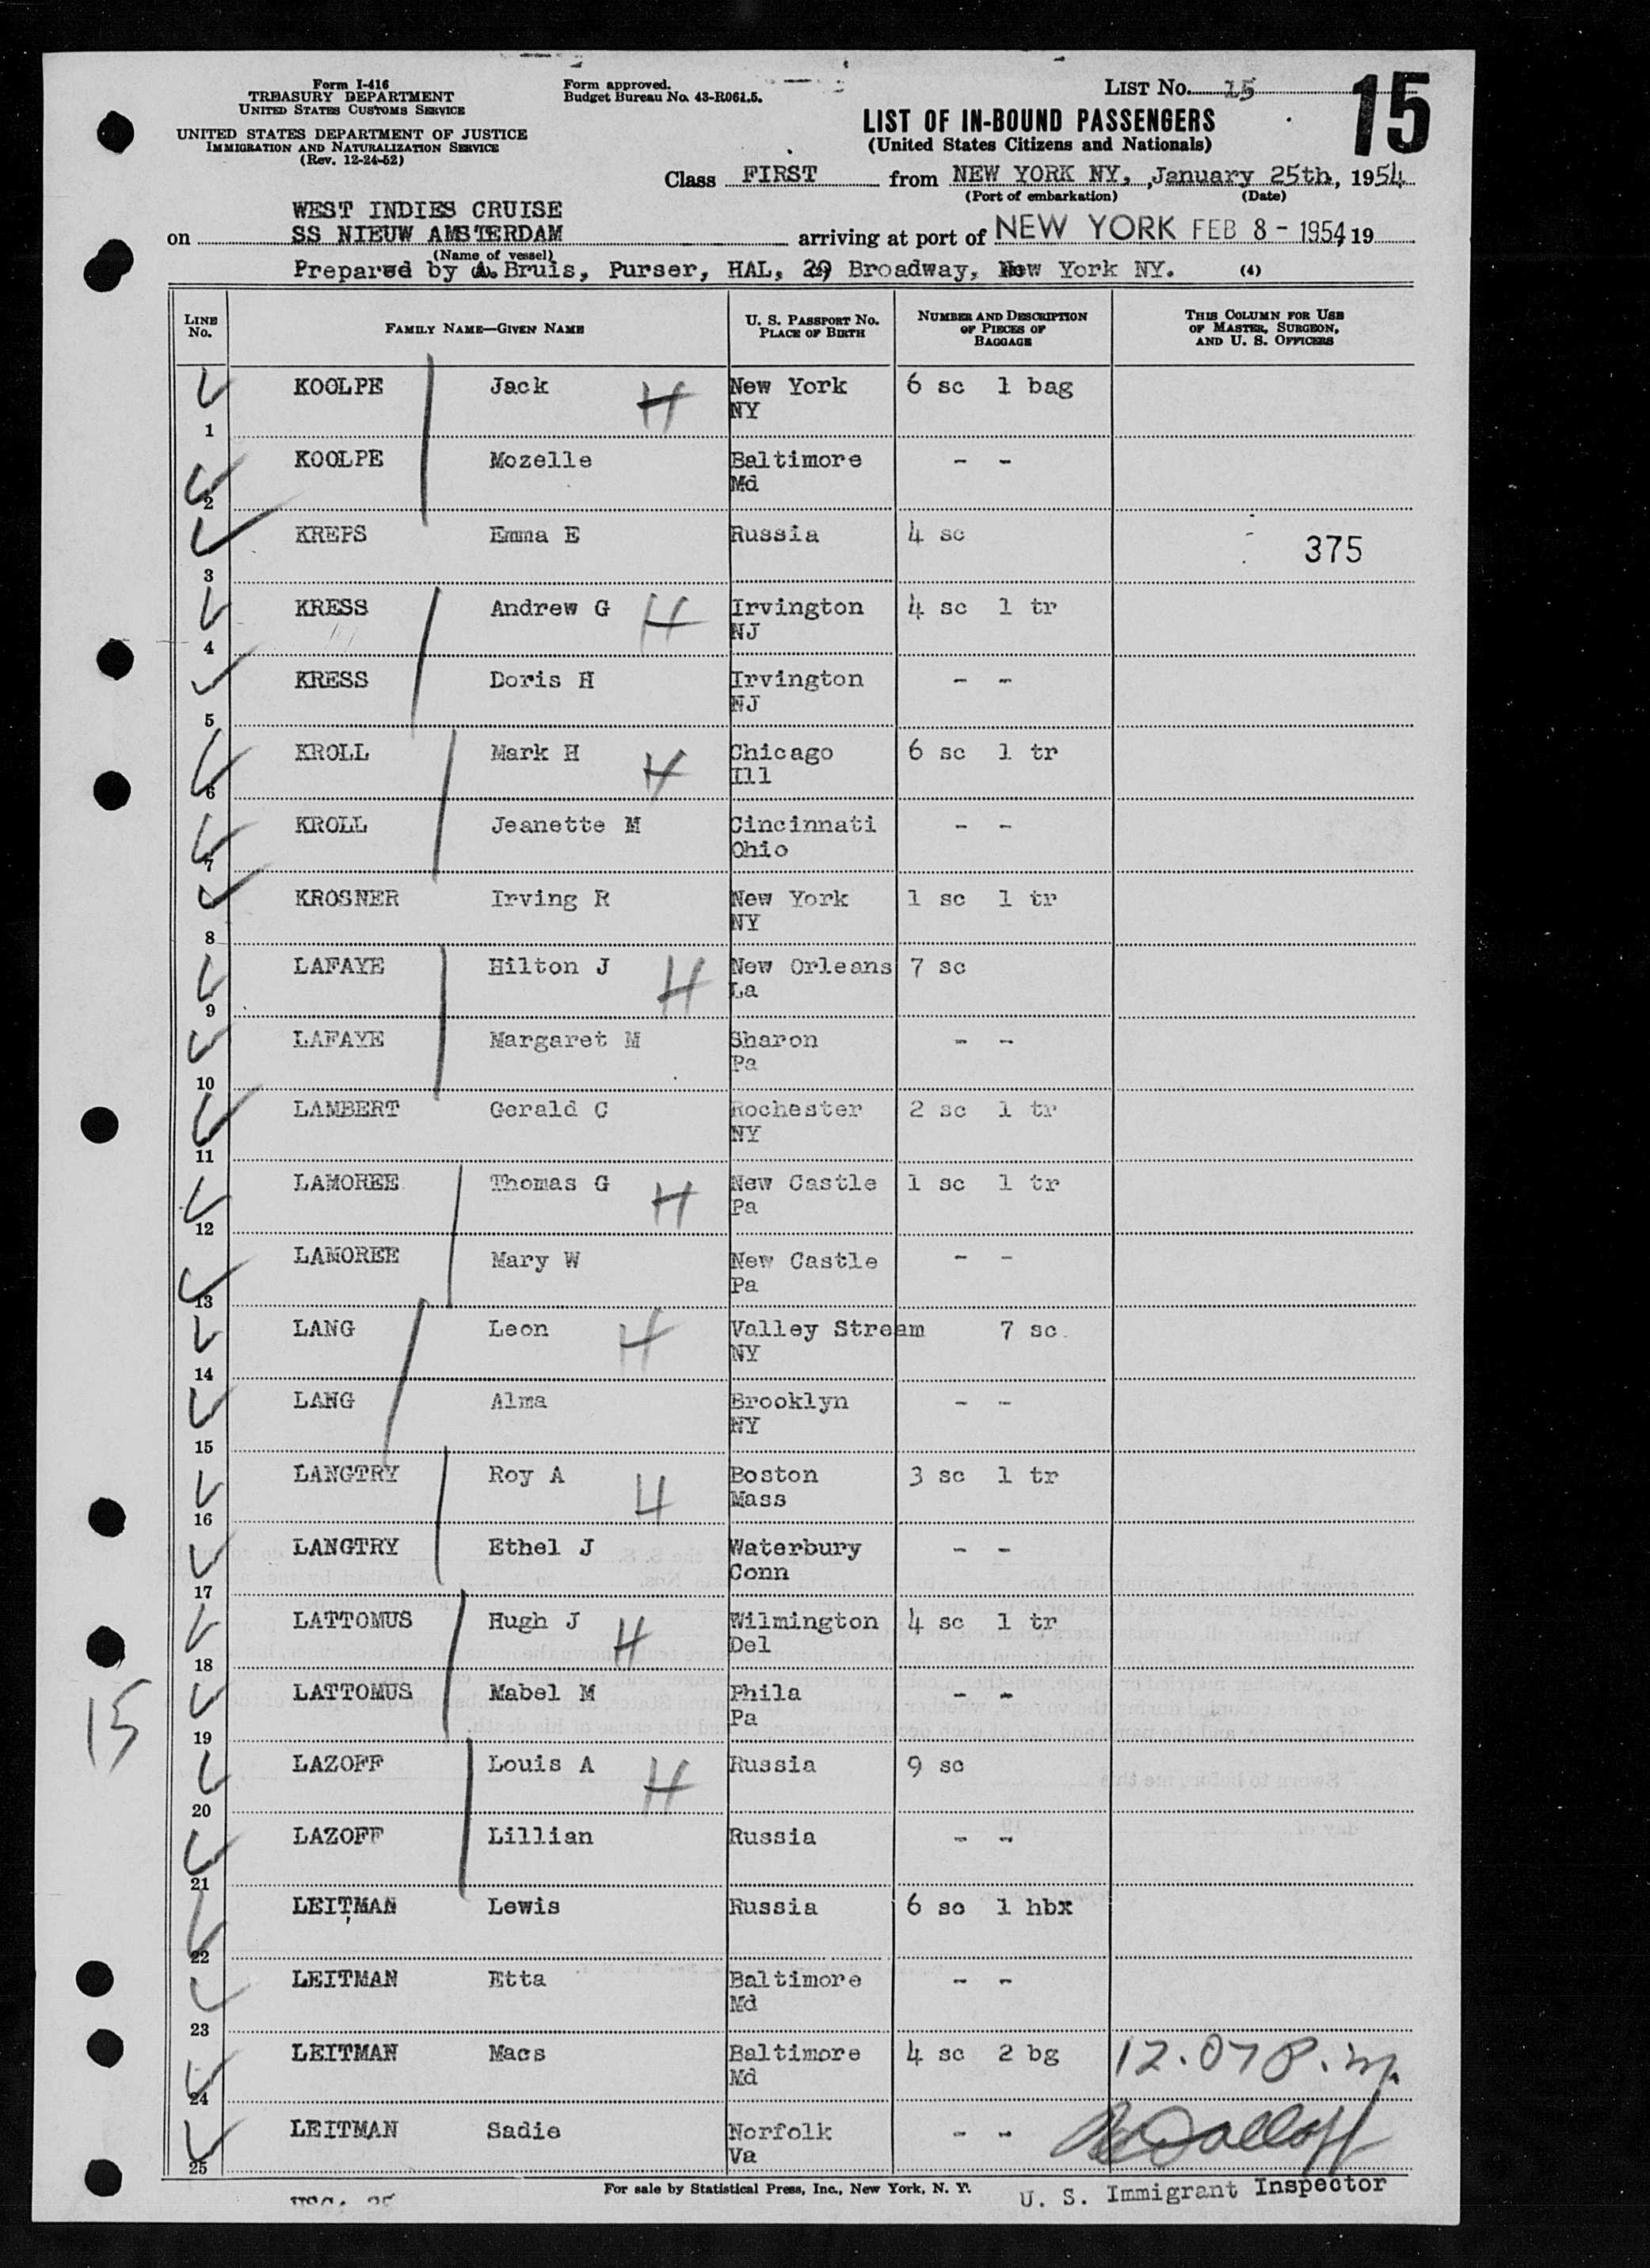 Form I-416
TREASURY DEPARTMENT
UNITED STATES CUSTOMS SERVICE
UNITED STATES DEPARTMENT OF JUSTICE
IMMIGRATION AND NATURALIZATION SERVICE
(Rev. 12-24-52)
Form approved.
Budget Bureau No. 43-R061.5.
LIST No. 15
15
LIST OF IN-BOUND PASSENGERS
(United States Citizens and Nationals)
Class FIRST from NEW YORK NY, , January 25th, 1954
(Port of embarkation) (Date)
WEST INDIES CRUISE
on SS NIEUW AMSTERDAM arriving at port of NEW YORK FEB 8 - 1954, 19
(Name of vessel)
Prepared by A. Bruis, Purser, HAL, 29 Broadway, New York NY. (4)
LINE No. FAMILY NAME—GIVEN NAME U. S. PASSPORT No. PLACE OF BIRTH NUMBER AND DESCRIPTION OF PIECES OF BAGGAGE THIS COLUMN FOR USE OF MASTER, SURGEON, AND U. S. OFFICERS
KOOLPE Jack H New York 6 sc 1 bag
NY
1
KOOLPE Mozelle Baltimore - -
Md
2
KREPS Emma E Russia 4 sc 375
3
KRESS Andrew G H Irvington 4 sc 1 tr
NJ
4
KRESS Doris H Irvington - -
NJ
5
KROLL Mark H H Chicago 6 sc 1 tr
Ill
6
KROLL Jeanette M Cincinnati - -
Ohio
7
KROSNER Irving R New York 1 sc 1 tr
NY
8
LAFAYE Hilton J H New Orleans 7 sc
La
9
LAFAYE Margaret M Sharon - -
Pa
10
LAMBERT Gerald C Rochester 2 sc 1 tr
NY
11
LAMOREE Thomas G H New Castle 1 sc 1 tr
Pa
12
LAMOREE Mary W New Castle - -
Pa
13
LANG Leon H Valley Stream 7 sc.
NY
14
LANG Alma Brooklyn - -
NY
15
LANGTRY Roy A H Boston 3 sc 1 tr
Mass
16
LANGTRY Ethel J Waterbury - -
Conn
17
LATTOMUS Hugh J H Wilmington 4 sc 1 tr
Del
18
LATTOMUS Mabel M Phila - -
Pa
19
15
LAZOFF Louis A H Russia 9 sc
20
LAZOFF Lillian Russia - -
21
LEITMAN Lewis Russia 6 sc 1 hbx
22
LEITMAN Etta Baltimore - -
Md
23
LEITMAN Macs Baltimore 4 sc 2 bg 12.07 P.m.
Md
24
LEITMAN Sadie Norfolk - -
Va
25
For sale by Statistical Press, Inc., New York, N. Y.
U. S. Immigrant Inspector